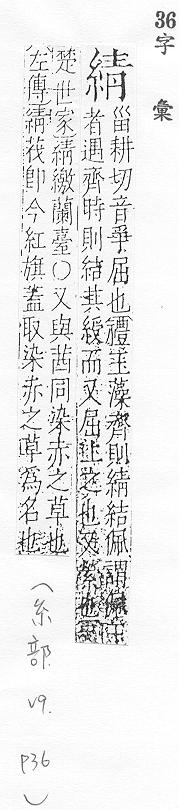 36
字彙
綪
甾耕切音爭屈也禮玉藻齊則綪結佩謂佩玉
者遇齊時則結其綬而又屈上之也又縈也史
楚世家綪繳蘭臺〇又與茜同染赤之草也
左傳綪茷卽今紅旗蓋取染赤之草爲名也
(糸部
v9.
p36
)